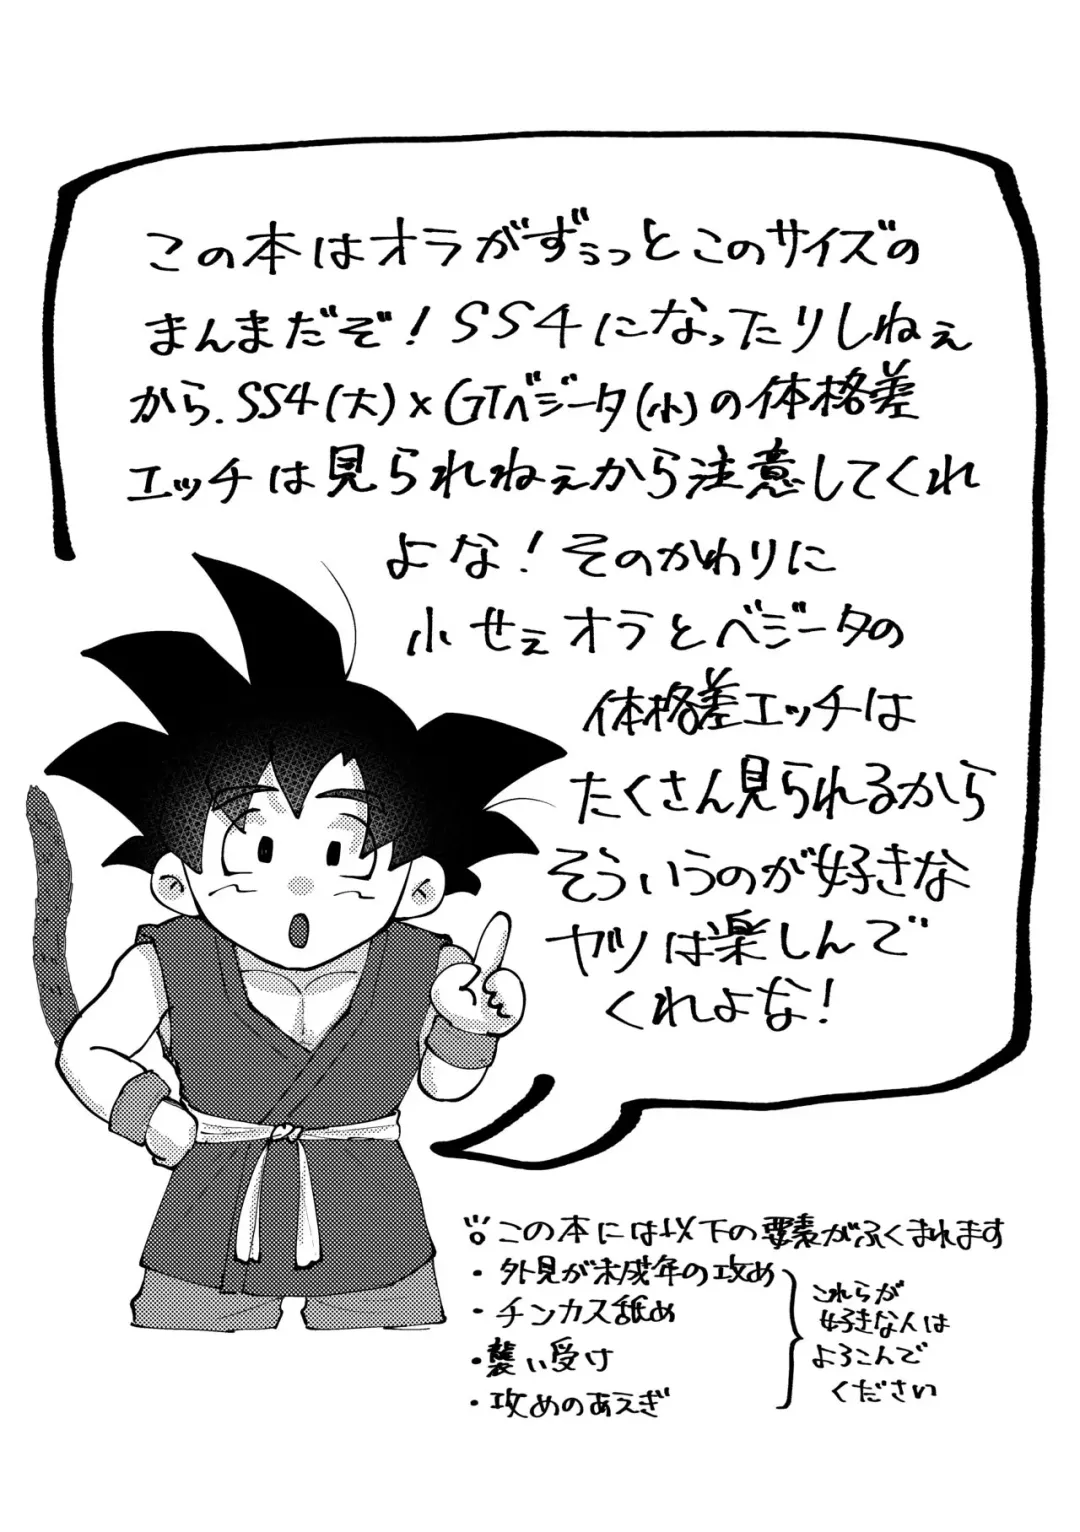 この本はオラがずぅっとこのサイズの
まんまだぞ！SS4になったりしねぇ
から、SS4(大)×GTベジータ(小)の体格差
エッチは見られねぇから注意してくれ
よな！そのかわりに
小せぇオラとベジータの
体格差エッチは
たくさん見られるから
そういうのが好きな
ヤツは楽しんで
くれよな！
この本には以下の要素がふくまれます
・外見が未成年の攻め
・チンカス舐め
・襲い受け
・攻めのあえぎ
これらが
好きな人は
よろこんで
ください